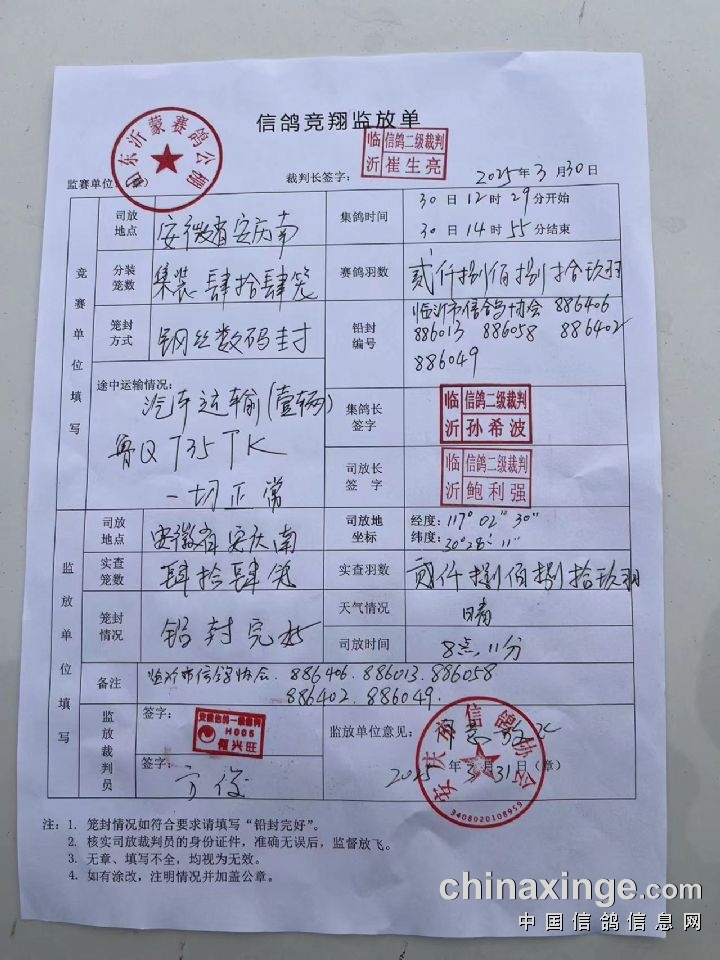 信鸽竞翔监放单
山东沂蒙赛鸽公棚
临沂 信鸽二级裁判 崔生亮
监赛单位:(章) 裁判长签字: 2025年3月30日
竞赛单位填写
司放地点 安徽省安庆南 集鸽时间 30日12时29分开始
30日14时55分结束
分装笼数 集装肆拾肆笼 赛鸽羽数 贰仟捌佰捌拾玖羽
笼封方式 钢丝数码封 铅封编号 临沂市信鸽协会 886406
886013 886058 886402
886049
途中运输情况:
汽车运输(壹辆)
鲁Q T35TK
一切正常
集鸽长签字 临沂 信鸽二级裁判 孙希波
司放长签字 临沂 信鸽二级裁判 鲍利强
监放单位填写
司放地点 安徽省安庆南 司放地坐标 经度:117° 02" 30"
纬度:30° 28' 11"
实查笼数 肆拾肆笼 实查羽数 贰仟捌佰捌拾玖羽
笼封情况 铅封完好 天气情况 晴
司放时间 8点11分
备注 临沂市信鸽协会. 886406. 886013. 886058
886402. 886049.
监放裁判员 签字: 安徽信鸽一级裁判 H005 兴旺
签字: 方俊
监放单位意见:
安庆市信鸽协会
2025年3月31日(章)
3408020108959
注: 1. 笼封情况如符合要求请填写“铅封完好”。
2. 核实司放裁判员的身份证件,准确无误后,监督放飞。
3. 无章、填写不全,均视为无效。
4. 如有涂改,注明情况并加盖公章。
chinaxinge.com
中国信鸽信息网